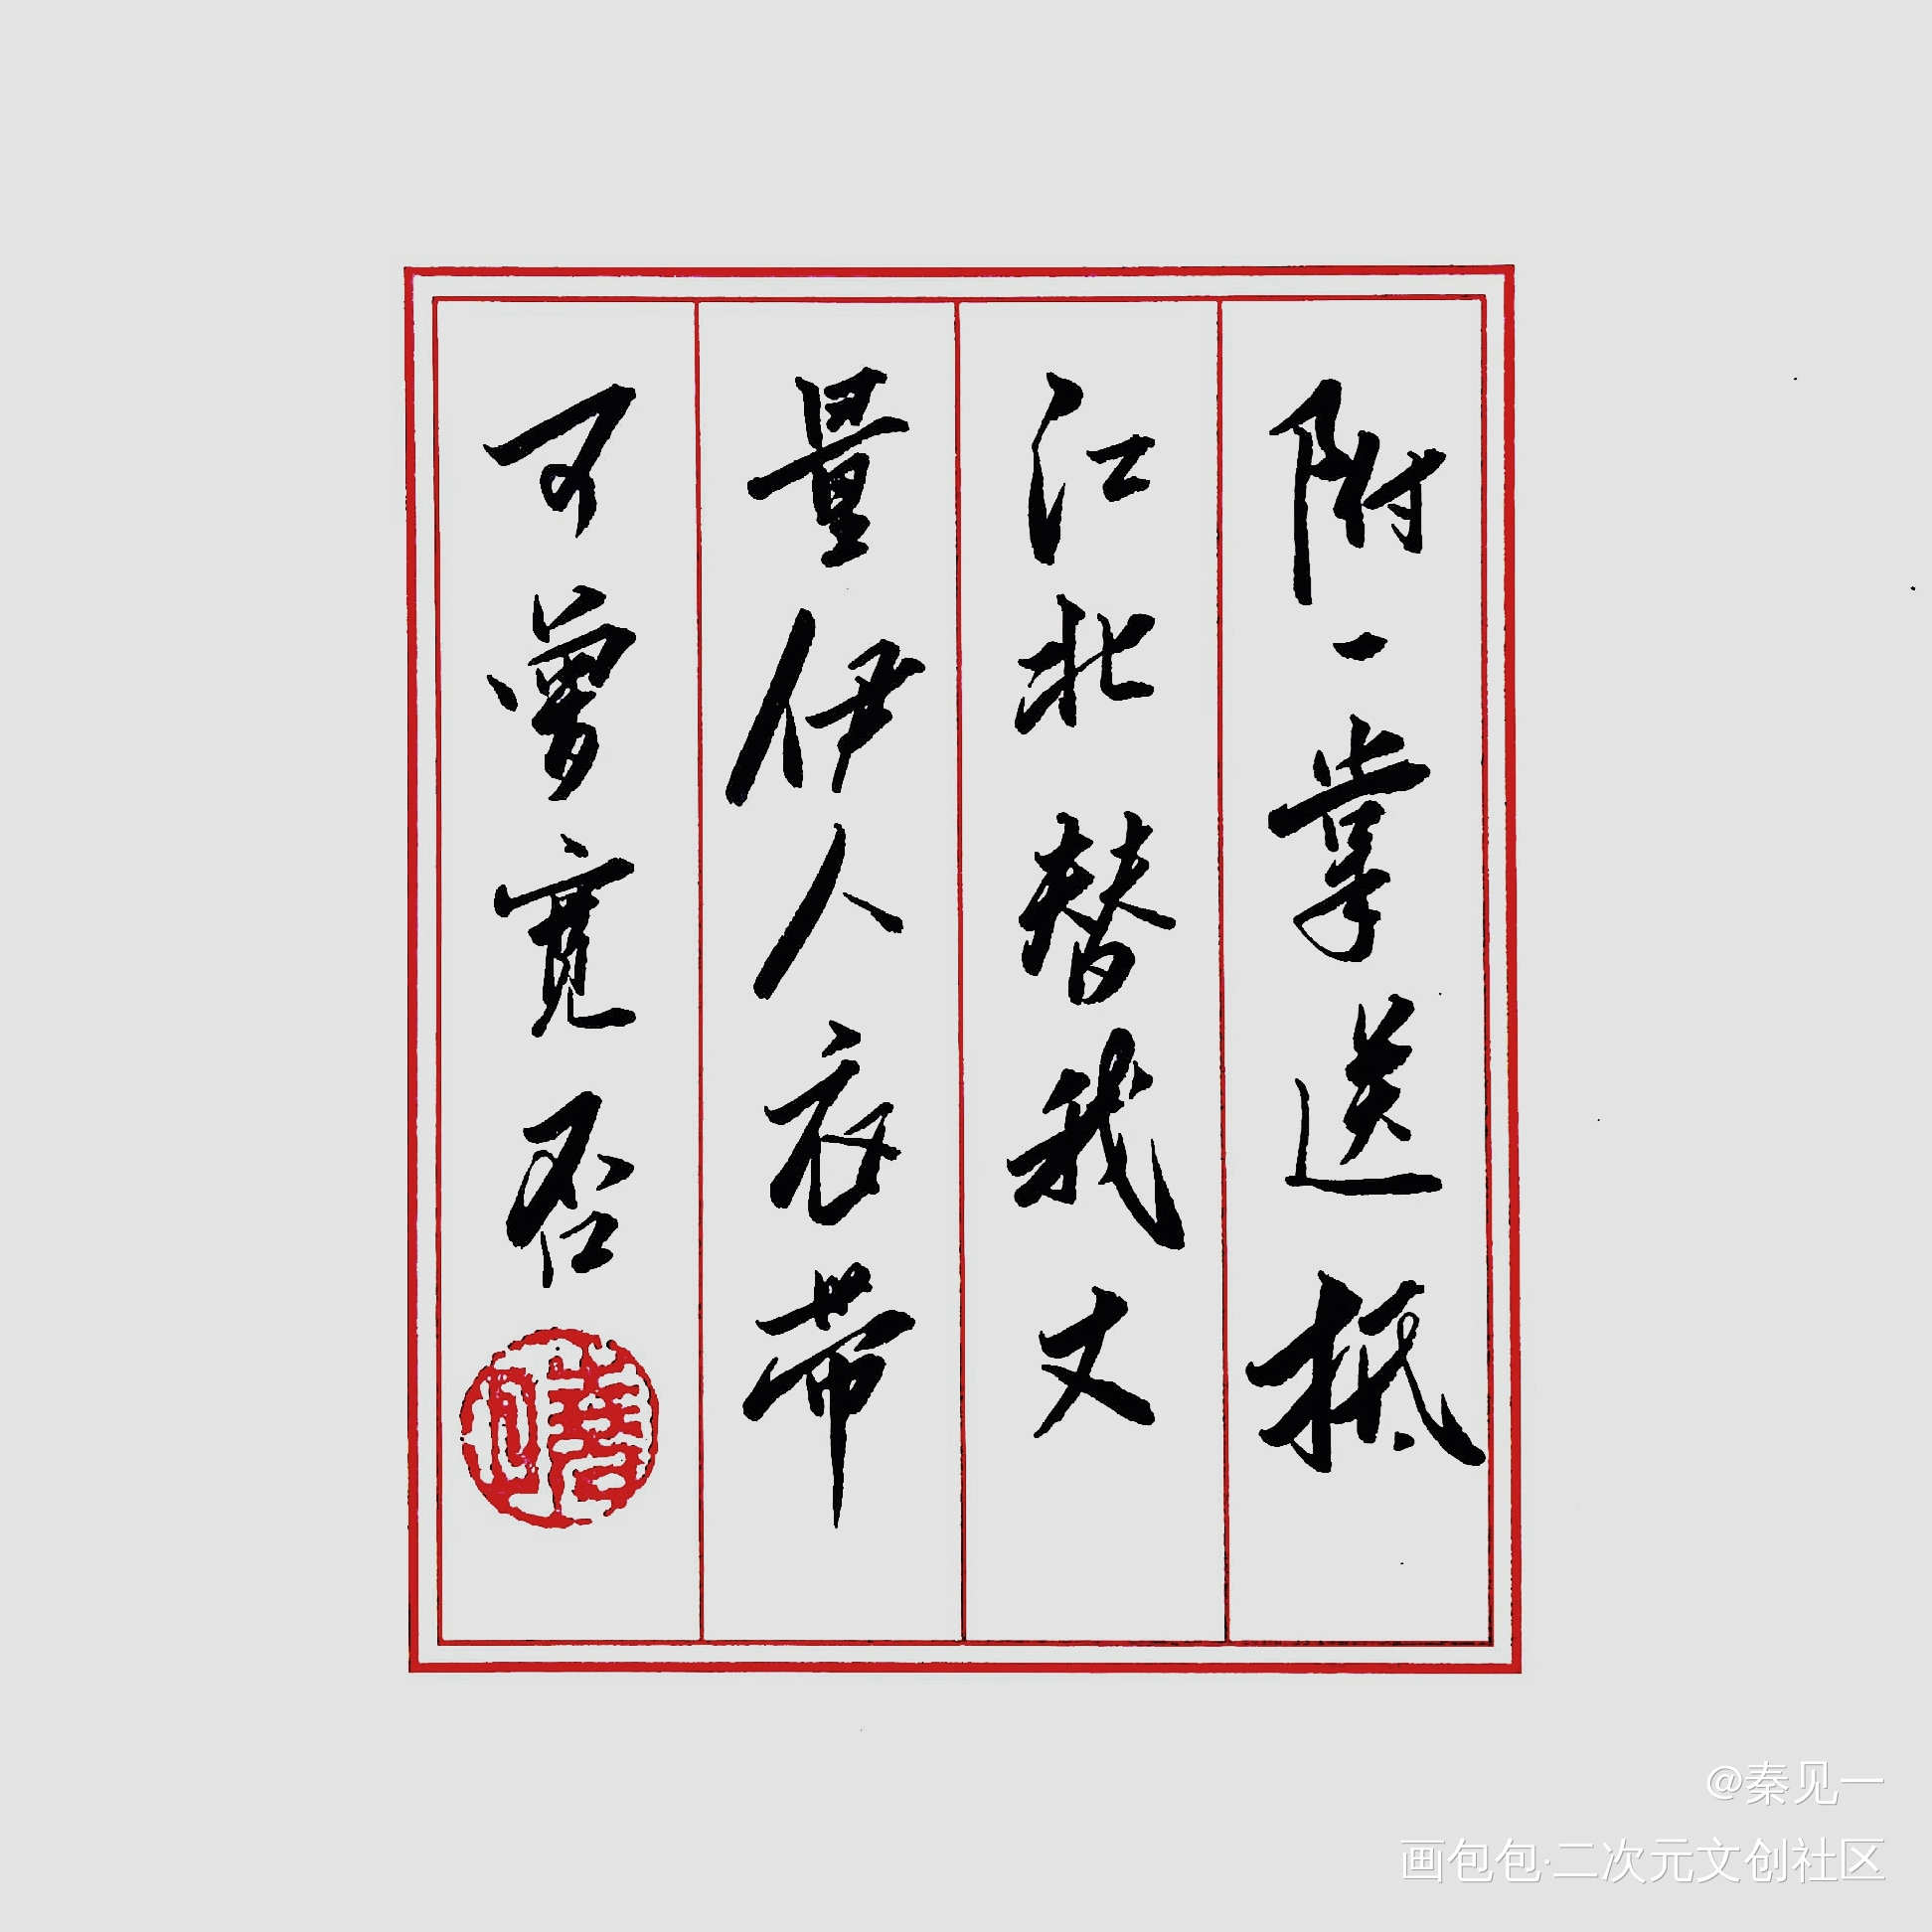 附一掌送抵
江北替我丈
量伊人衣带
可曾宽否
@秦见一
画包包·二次元文创社区